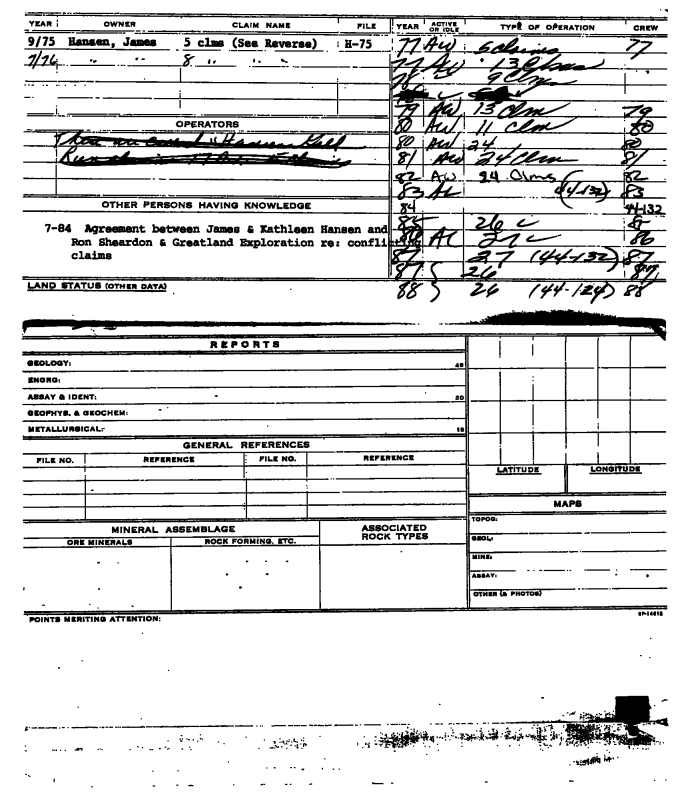 YEAR OWNER CLAIM NAME FILE YEAR ACTIVE OR IDLE TYPE OF OPERATION CREW
9/75 Hansen, James 5 clms (See Reverse) H-75 77 AW 5 claims 77
7/76 " " " 8 " " " 77 AW 13 Clms
78 9 Clms
79 AW 13 Clm 79
OPERATORS 80 AW 11 Clm 80
80 AW 24 80
81 AW 24 Clm 81
82 AW 24 Clms 82
83 AL (44-132) 83
OTHER PERSONS HAVING KNOWLEDGE 84 44-132
7-84 Agreement between James & Kathleen Hansen and 85 26 c 85
Ron Sheardon & Greatland Exploration re: conflicting 86 AL 27 c 86
claims 87 27 (44-132) 87
87 26 87
LAND STATUS (OTHER DATA) 88 26 (44-124) 88
REPORTS
GEOLOGY:
ENGRG:
ASSAY & IDENT: 20
GEOPHYS. & GEOCHEM:
METALLURGICAL:
GENERAL REFERENCES
FILE NO. REFERENCE FILE NO. REFERENCE
LATITUDE LONGITUDE
MAPS
MINERAL ASSEMBLAGE ASSOCIATED ROCK TYPES TOPOG:
ORE MINERALS ROCK FORMING, ETC. GEOL:
MINE:
ASSAY:
OTHER (& PHOTOS)
POINTS MERITING ATTENTION: